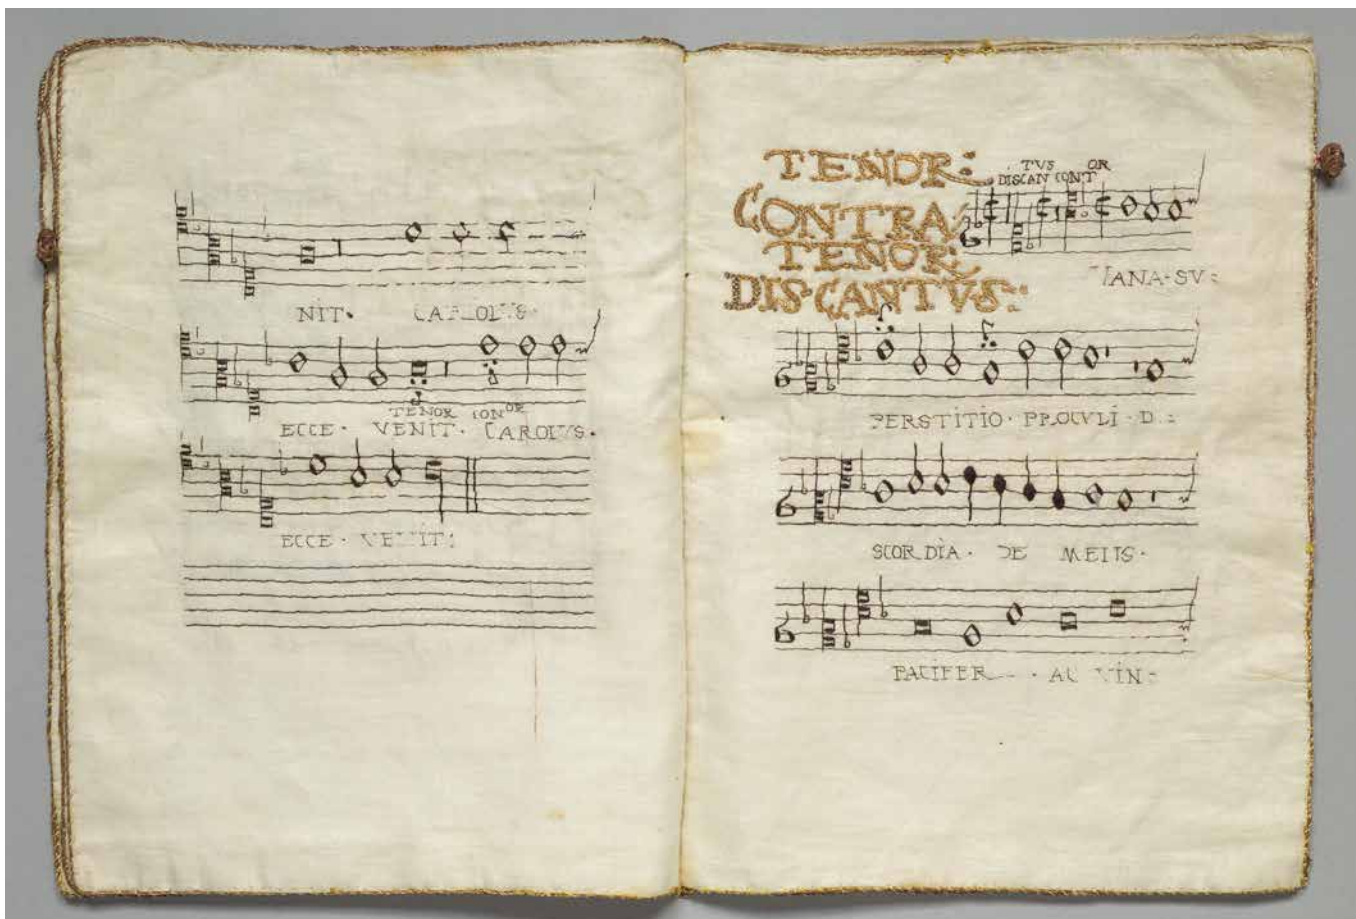 NIT· CAROLVS·
TENOR CON OR
ECCE· VENIT· CAROLVS·
ECCE· VENIT:
TENOR:
CONTRA
TENOR:
DIS·CANTVS:
TVS OR
DISCAN CONT
IANA·SV:
PERSTITIO· PROCVLI· D:
SCORDIA· DE
PACIFER · AC VIN: